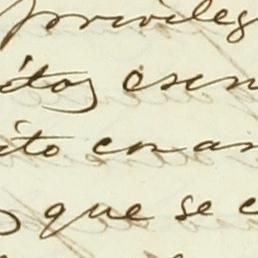 privileg
itos esen
ito en an
que se e